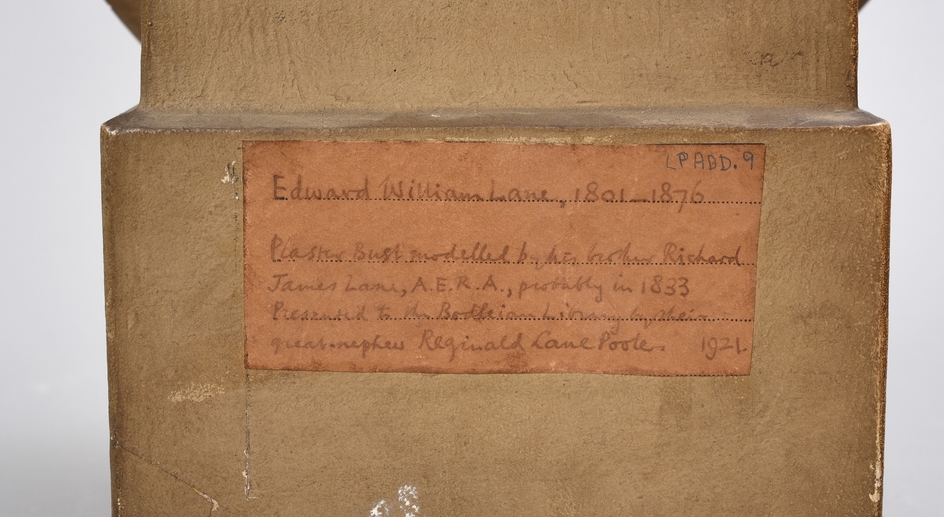 LP ABD. 9
Edward William Lane, 1801–1876
Plaster Bust modelled by his brother Richard
James Lane, A.E.R.A., probably in 1833
Presented to the Bodleian Library by their
great-nephew Reginald Lane Poole. 1921.